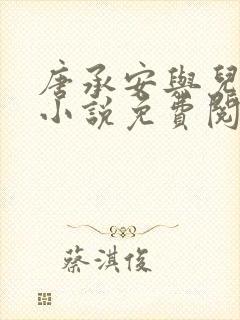 唐承安與兒
小說免費閱
蔡淇俊